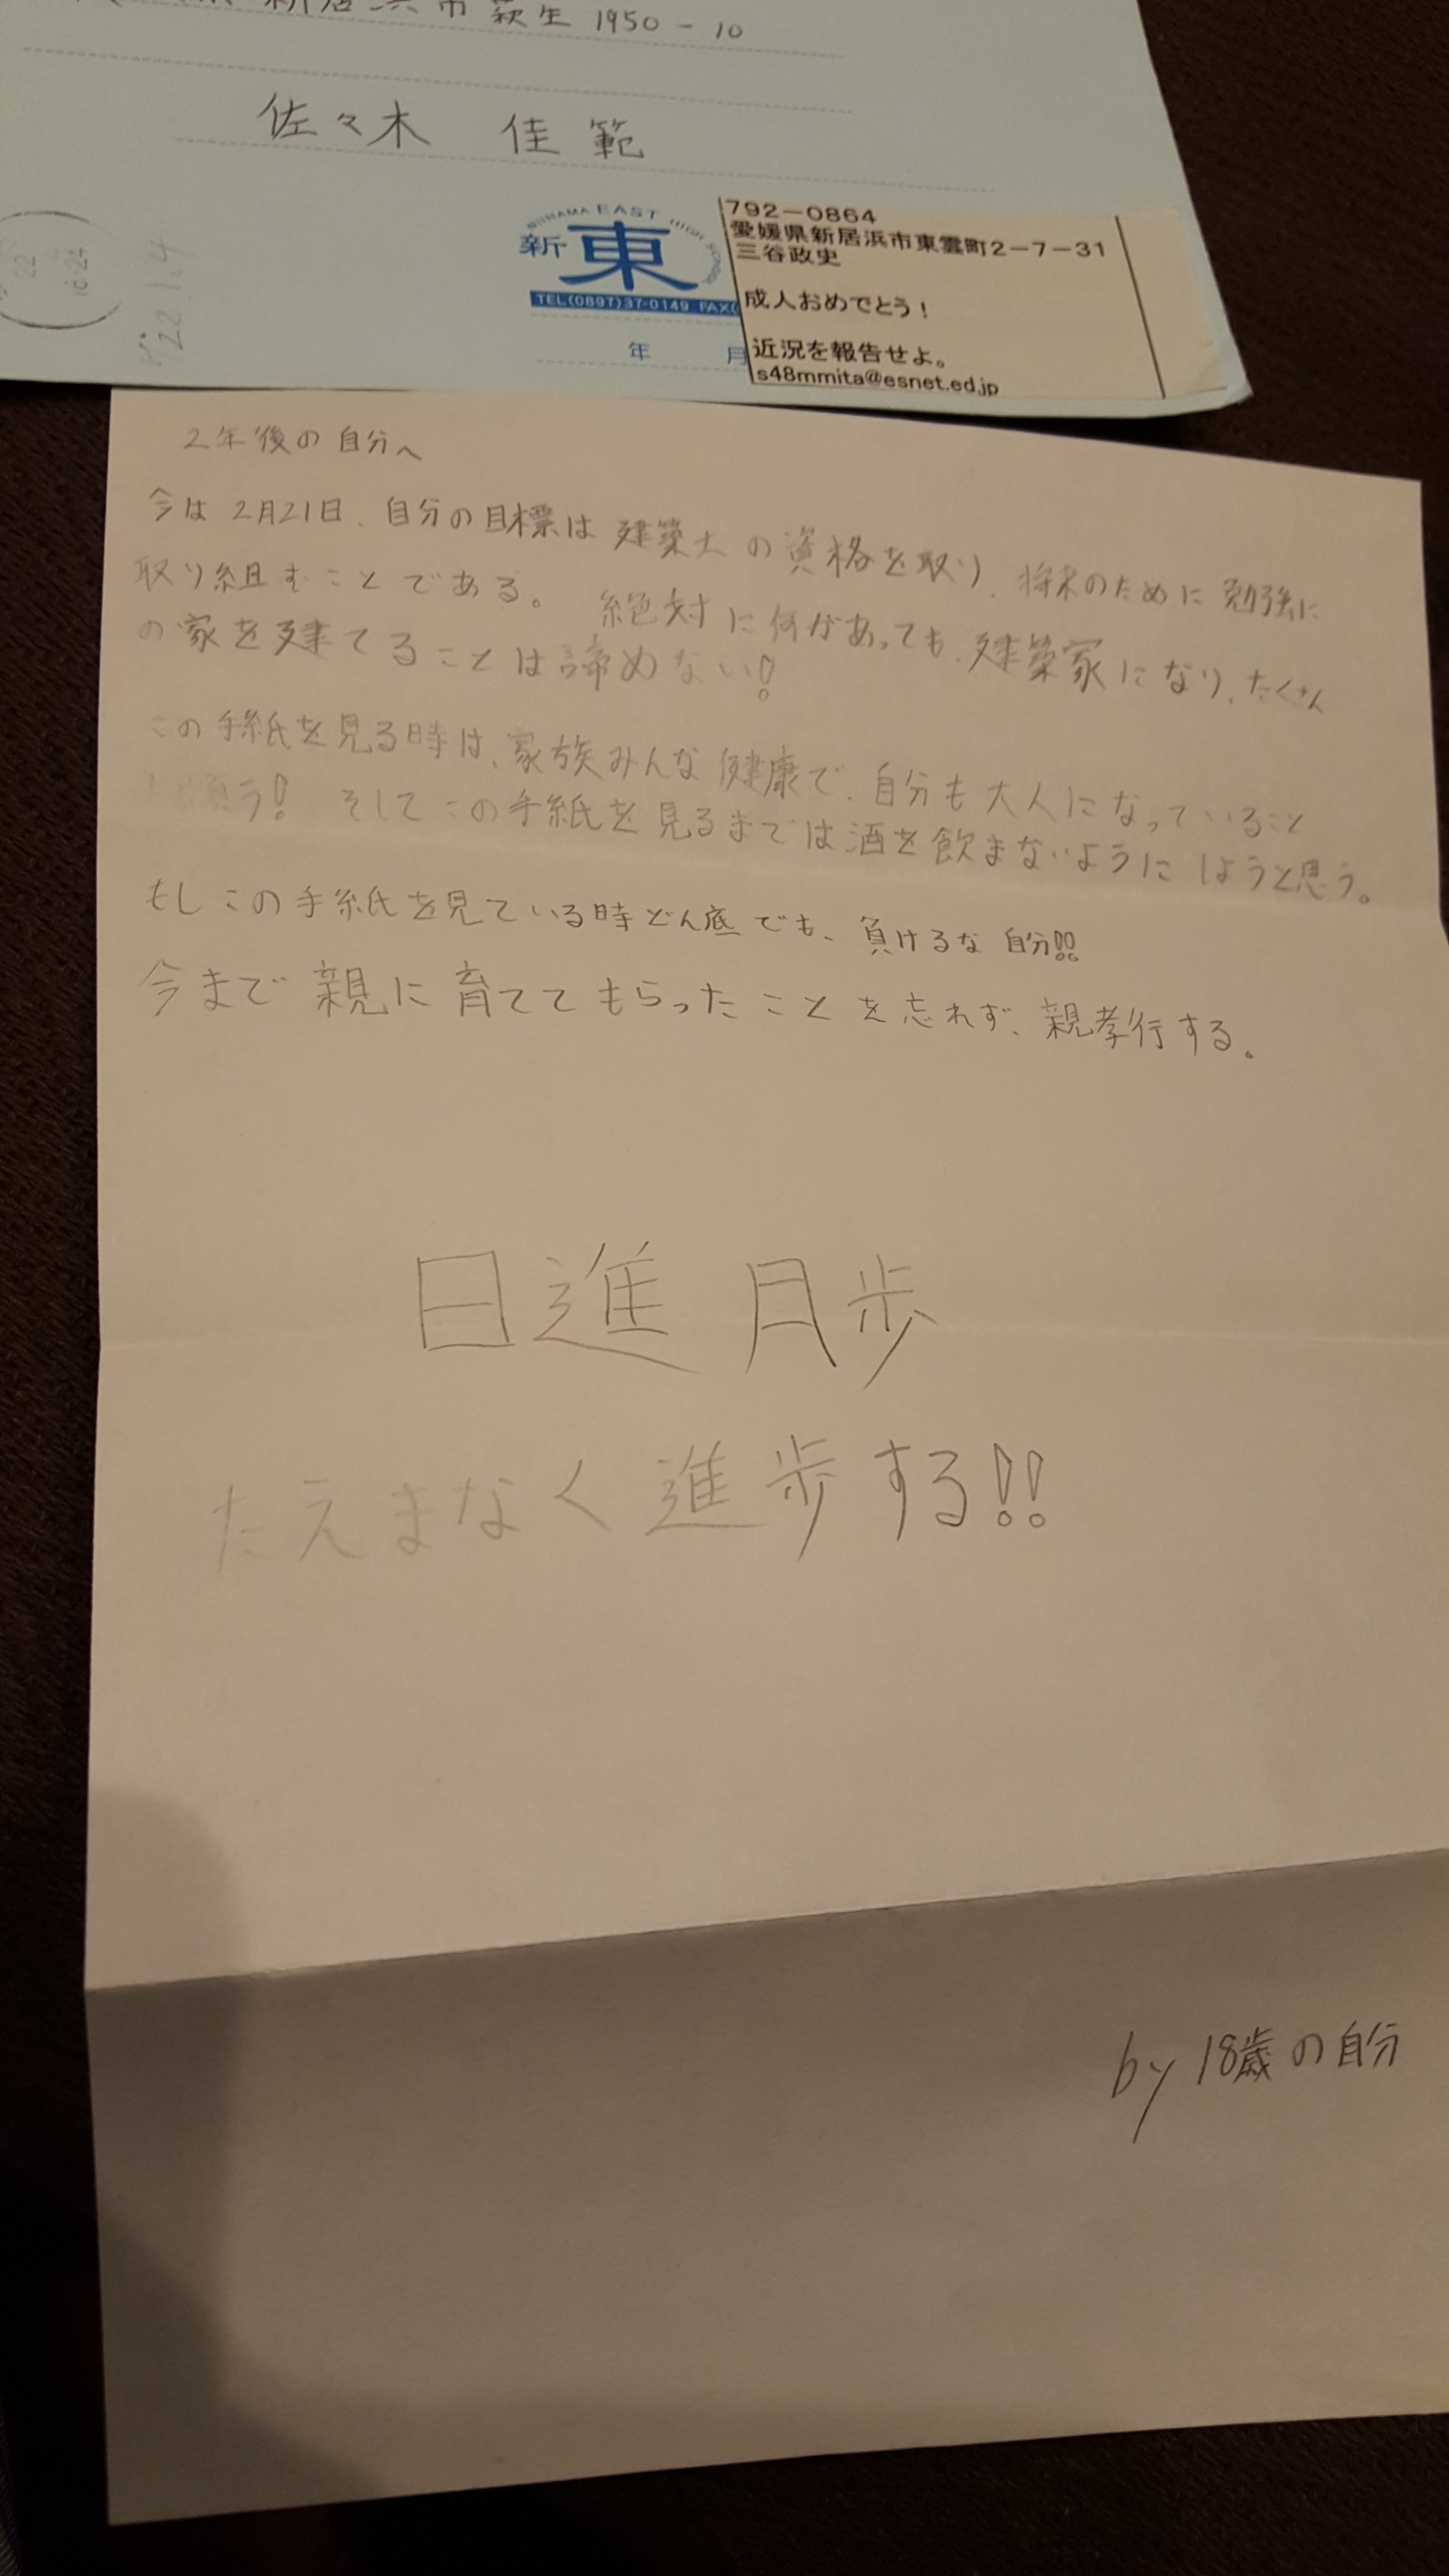 新居浜市萩生 1950-10
佐々木 佳範
NIIHAMA EAST HIGH SCHOOL
新東
TEL(0897)37-0149 FAX(
年 月
792-0864
愛媛県新居浜市東雲町2-7-31
三谷政史
成人おめでとう!
近況を報告せよ。
s48mmita@esnet.ed.jp
22
16-24
'22 1.4
2年後の自分へ
今は2月21日、自分の目標は建築士の資格を取り、将来のために勉強に
取り組むことである。 絶対に何があっても、建築家になり、たくさん
の家を建てることは諦めない!
この手紙を見る時は、家族みんな健康で、自分も大人になっていること
願う! そしてこの手紙を見るまでは酒を飲まないようにしようと思う。
もしこの手紙を見ている時どん底でも、負けるな自分!!
今まで親に育ててもらったことを忘れず、親孝行する。
日進月歩
たえまなく進歩する!!
by 18歳の自分